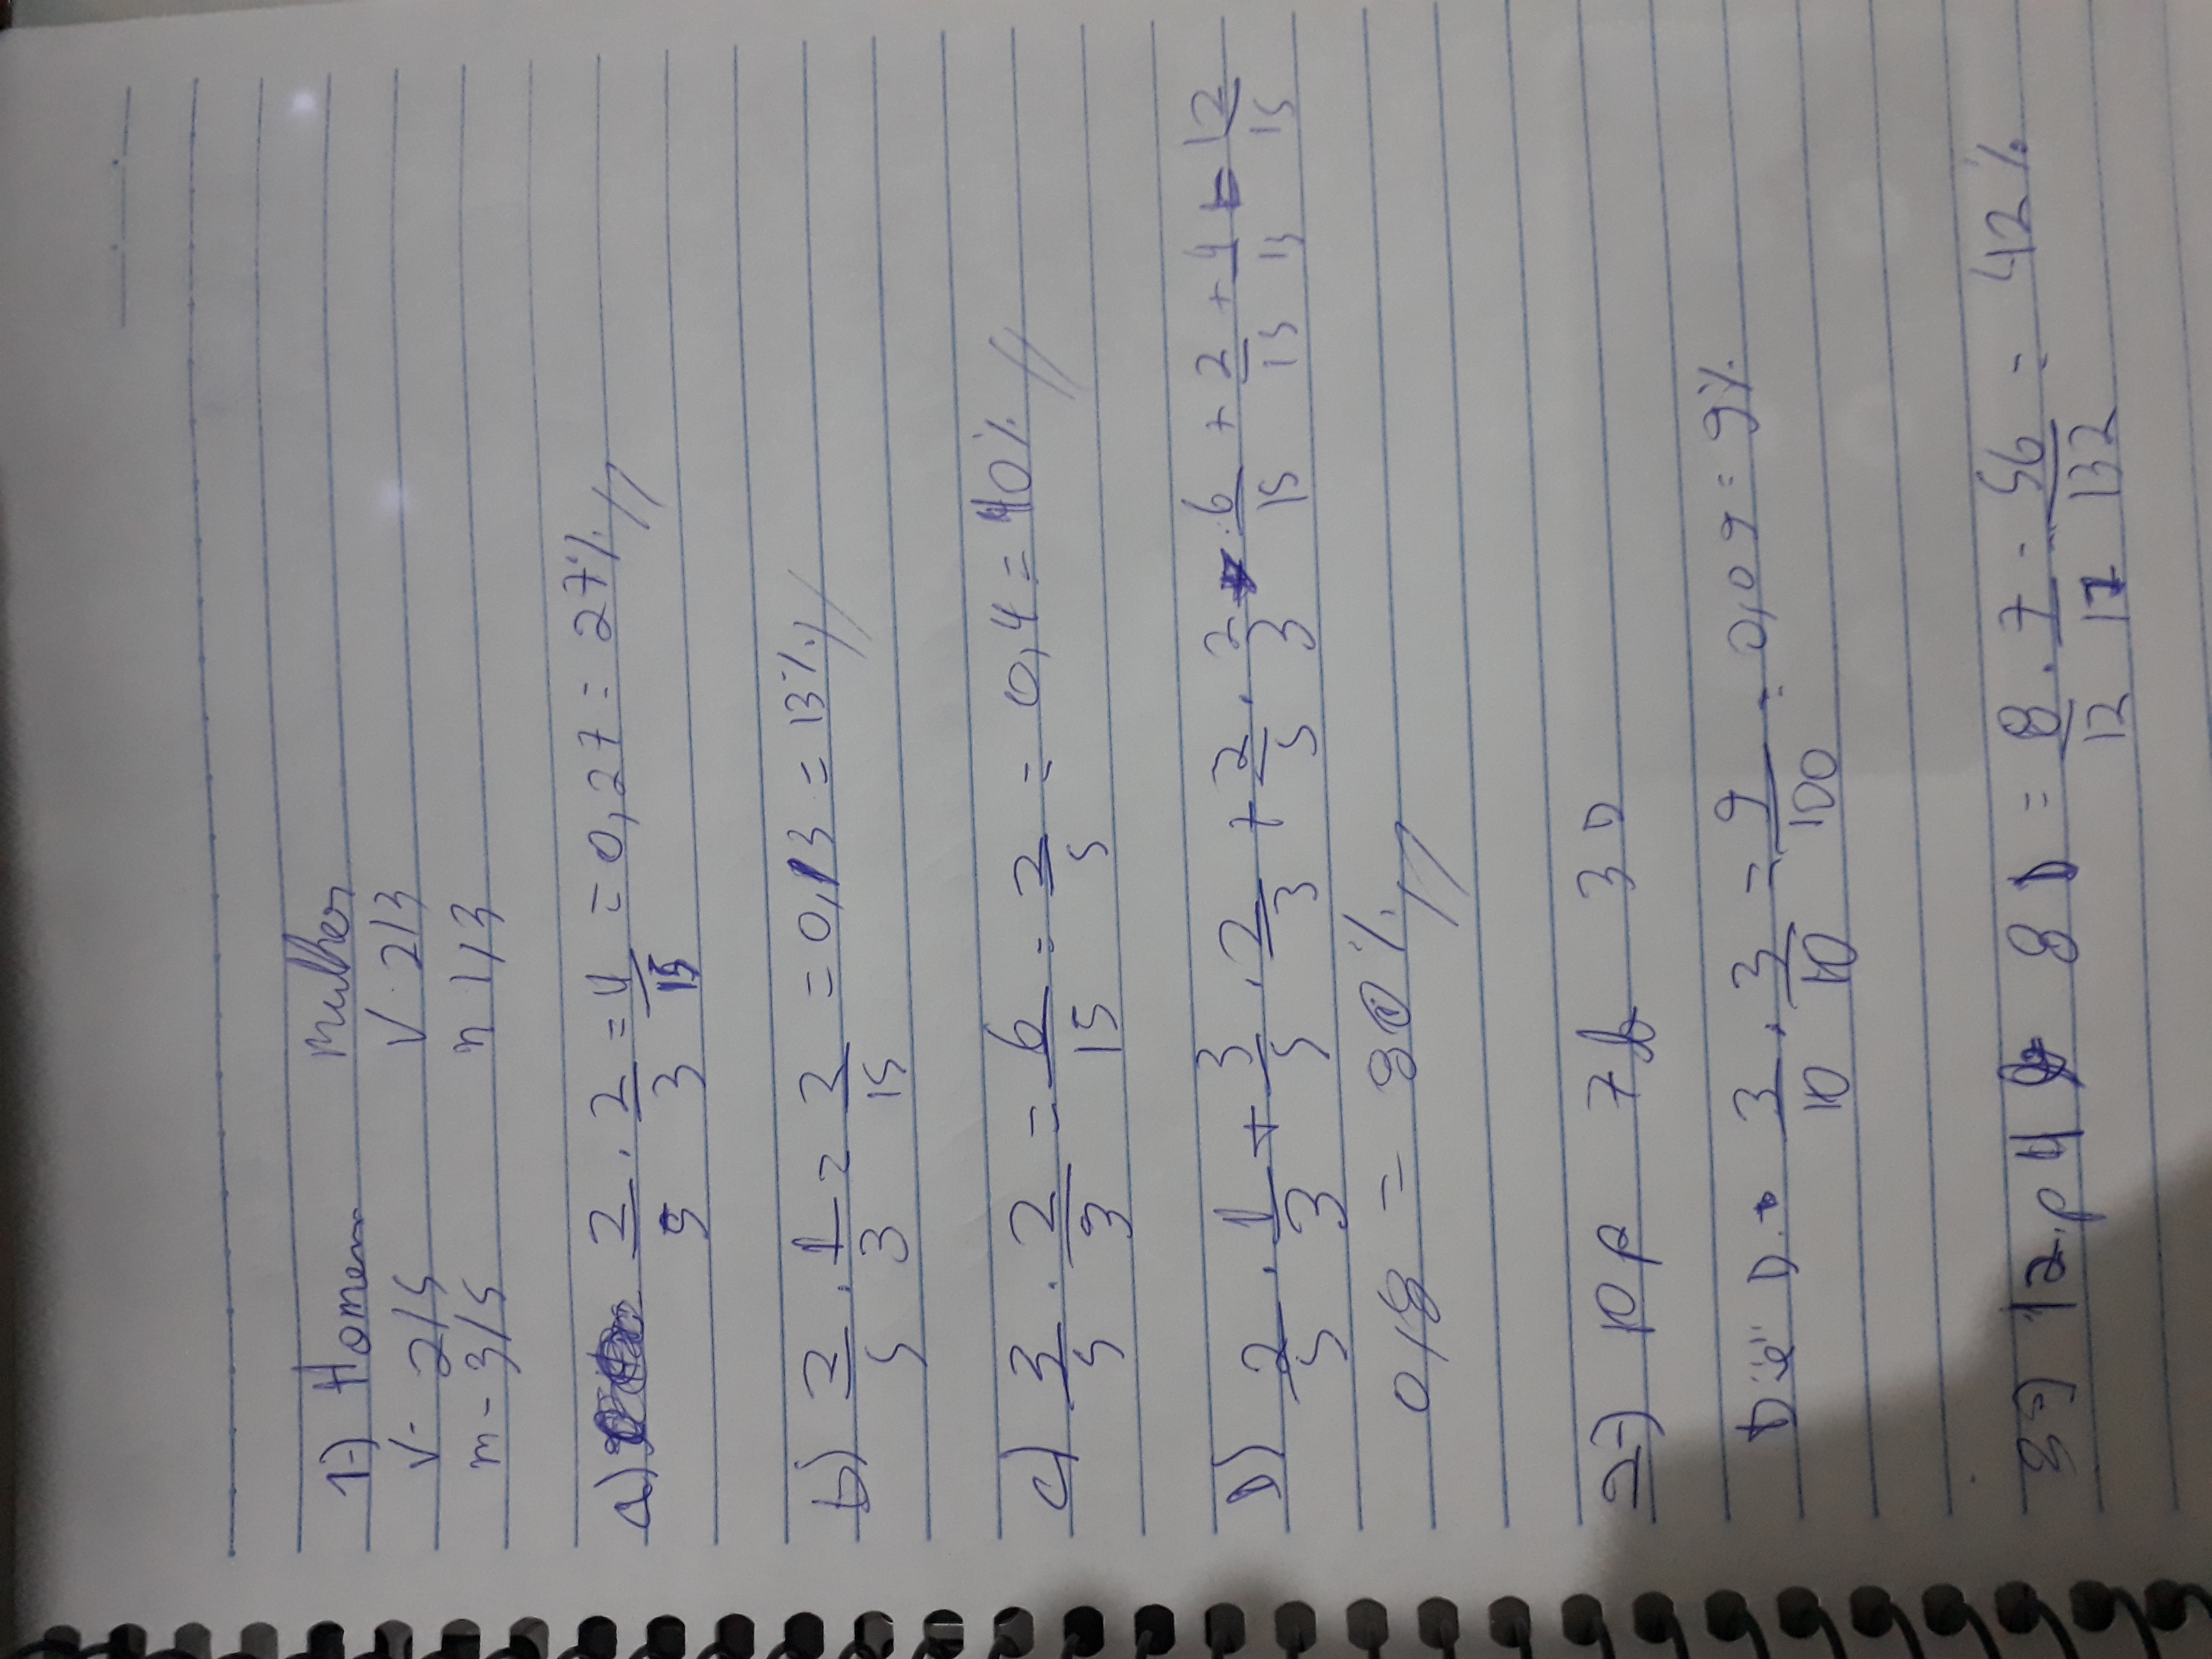 1-) Homem Mulher
V- 2/5 V 2/3
m- 3/5 n 1/3
a) 2/5 . 2/3 = 4/15 = 0,27 = 27%
b) 2/5 . 1/3 = 2/15 = 0,13 = 13%
c) 3/5 . 2/3 = 6/15 = 2/5 = 0,4 = 40%
D) 2/5 . 1/3 + 3/5 . 2/3 + 2/5 . 2/3 = 6/15 + 2/15 + 4/15 = 12/15
0,8 = 80%
2-) 10 p 7 b 3 D
D "e" D. 3/10 . 3/10 = 9/100 = 0,09 = 9%
3-) 12.p 4 b 8 D = 8/12 . 7/11 = 56/132 = 42%